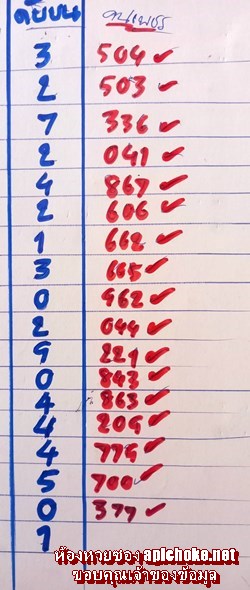 ดับบน คนเพชร
3 504
2 503
7 336
2 041
4 867
2 606
1 662
3 665
0 962
2 044
9 221
0 843
4 863
4 209
4 779
5 700
0 377
1
ห้องหวยซอง apichoke.net
ขอบคุณเจ้าของข้อมูล